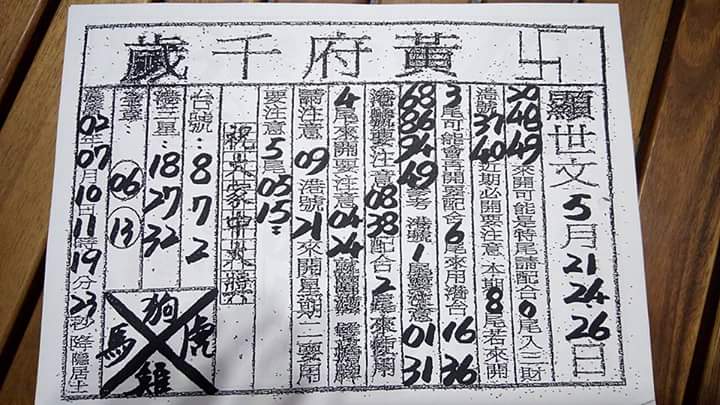 卍 黃府千歲
顯世文 5月21 24 26日
48 49來開可能是特尾請配合0尾入三財
港號37 40近期必開要注意本期8尾若來開
3尾可能會再開要配合6尾來用 16 36
68 86 94 49參考 港號1尾要注意01 31
港號要注意08 38配合2尾來 用
4尾來開要注意04 24 牌
請注意09港號21來開星期二要用
要注意5尾05 15
祝大家中大獎
台號:872
港三星:18 27 32
06 13
02年07月10日11時19分23秒降隱居士
狗
馬 虎
雞